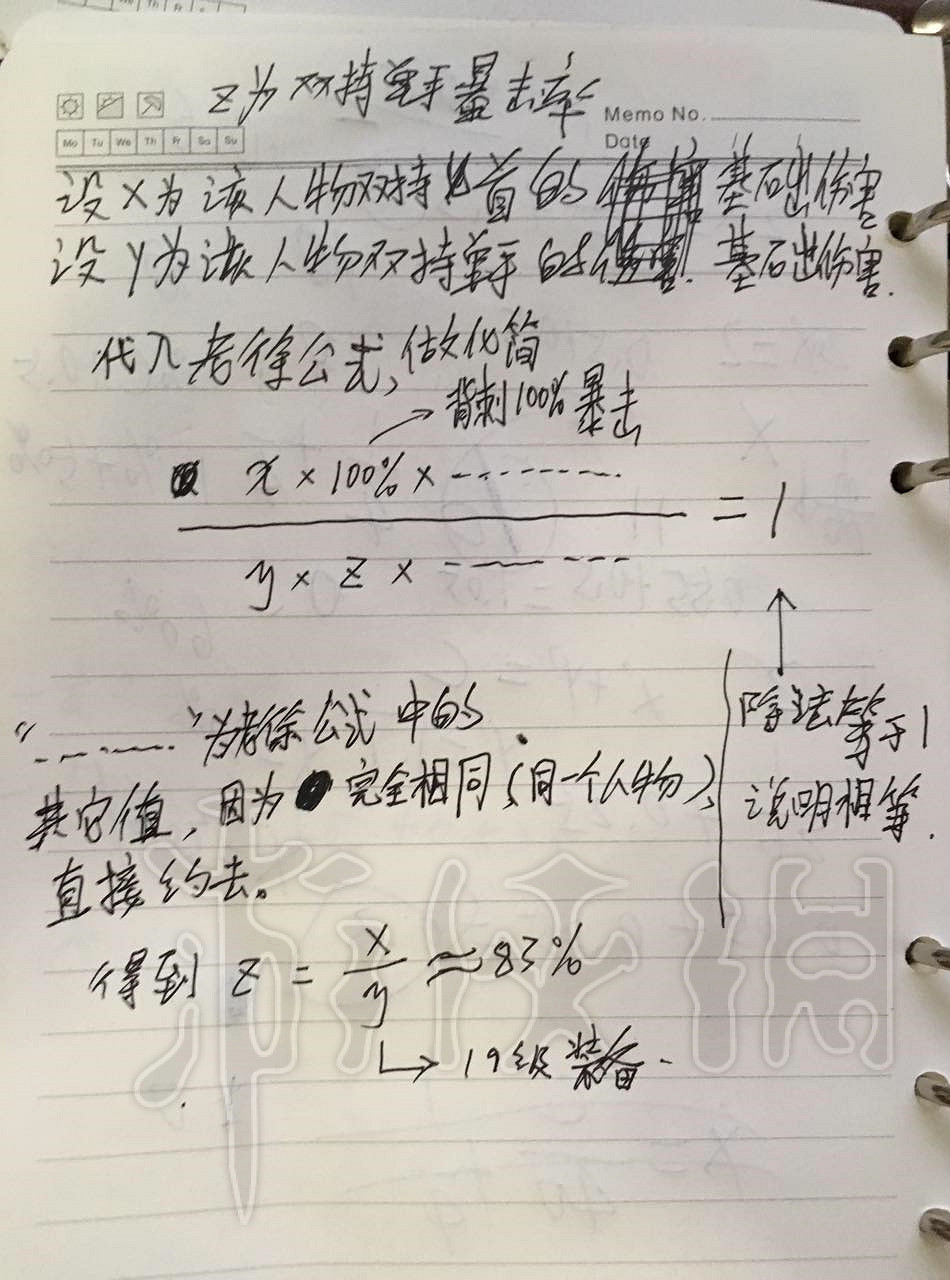 z为双持单手暴击率
Memo No.
Date
Mo Tu We Th Fr Sa Su
设X为该人物双持匕首的基础伤害
设y为该人物双持单手的基础伤害.
代入老徐公式,做化简
→背刺100%暴击
x × 100% × -------
y × z × -------
= 1
↑
除法等于1
说明相等.
"-------"为老徐公式中的
其它值,因为完全相同(同一个人物),
直接约去。
得到 z = x/y ≈ 83%
↳ 19级装备.